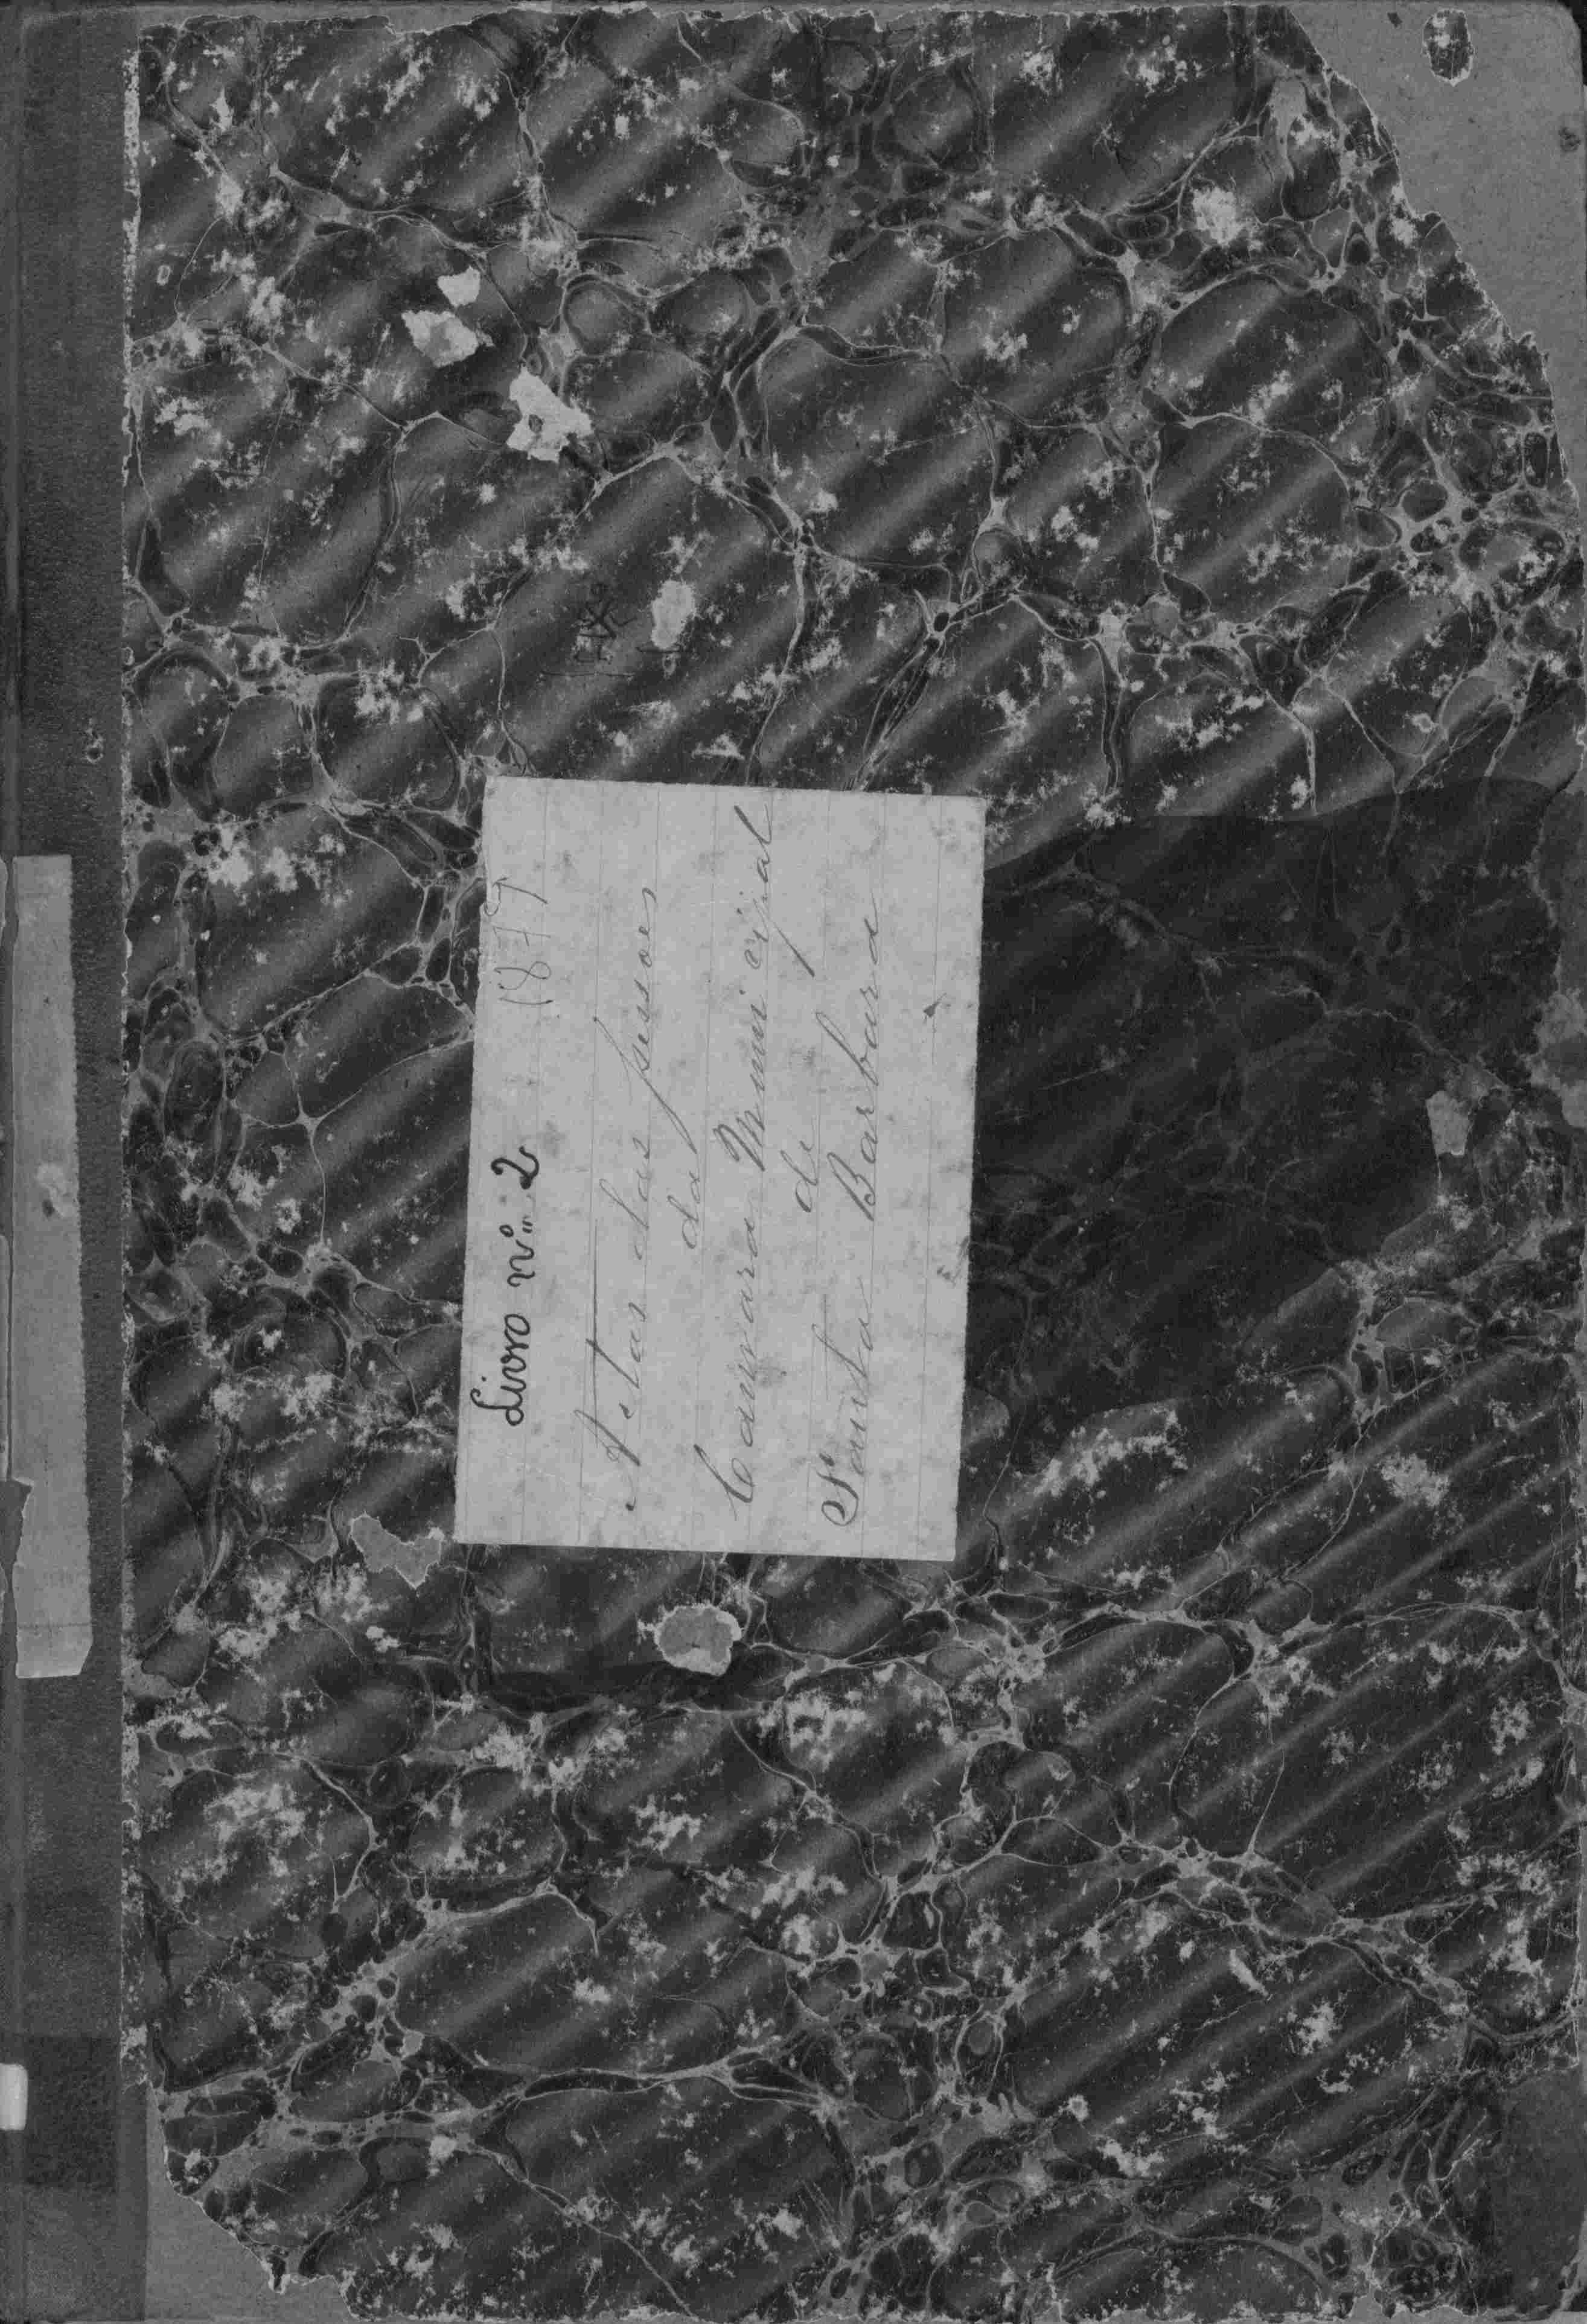 Livro nº 2
1879
Actas das sessoes
da
Camara Municipal
de
Santa Barbara